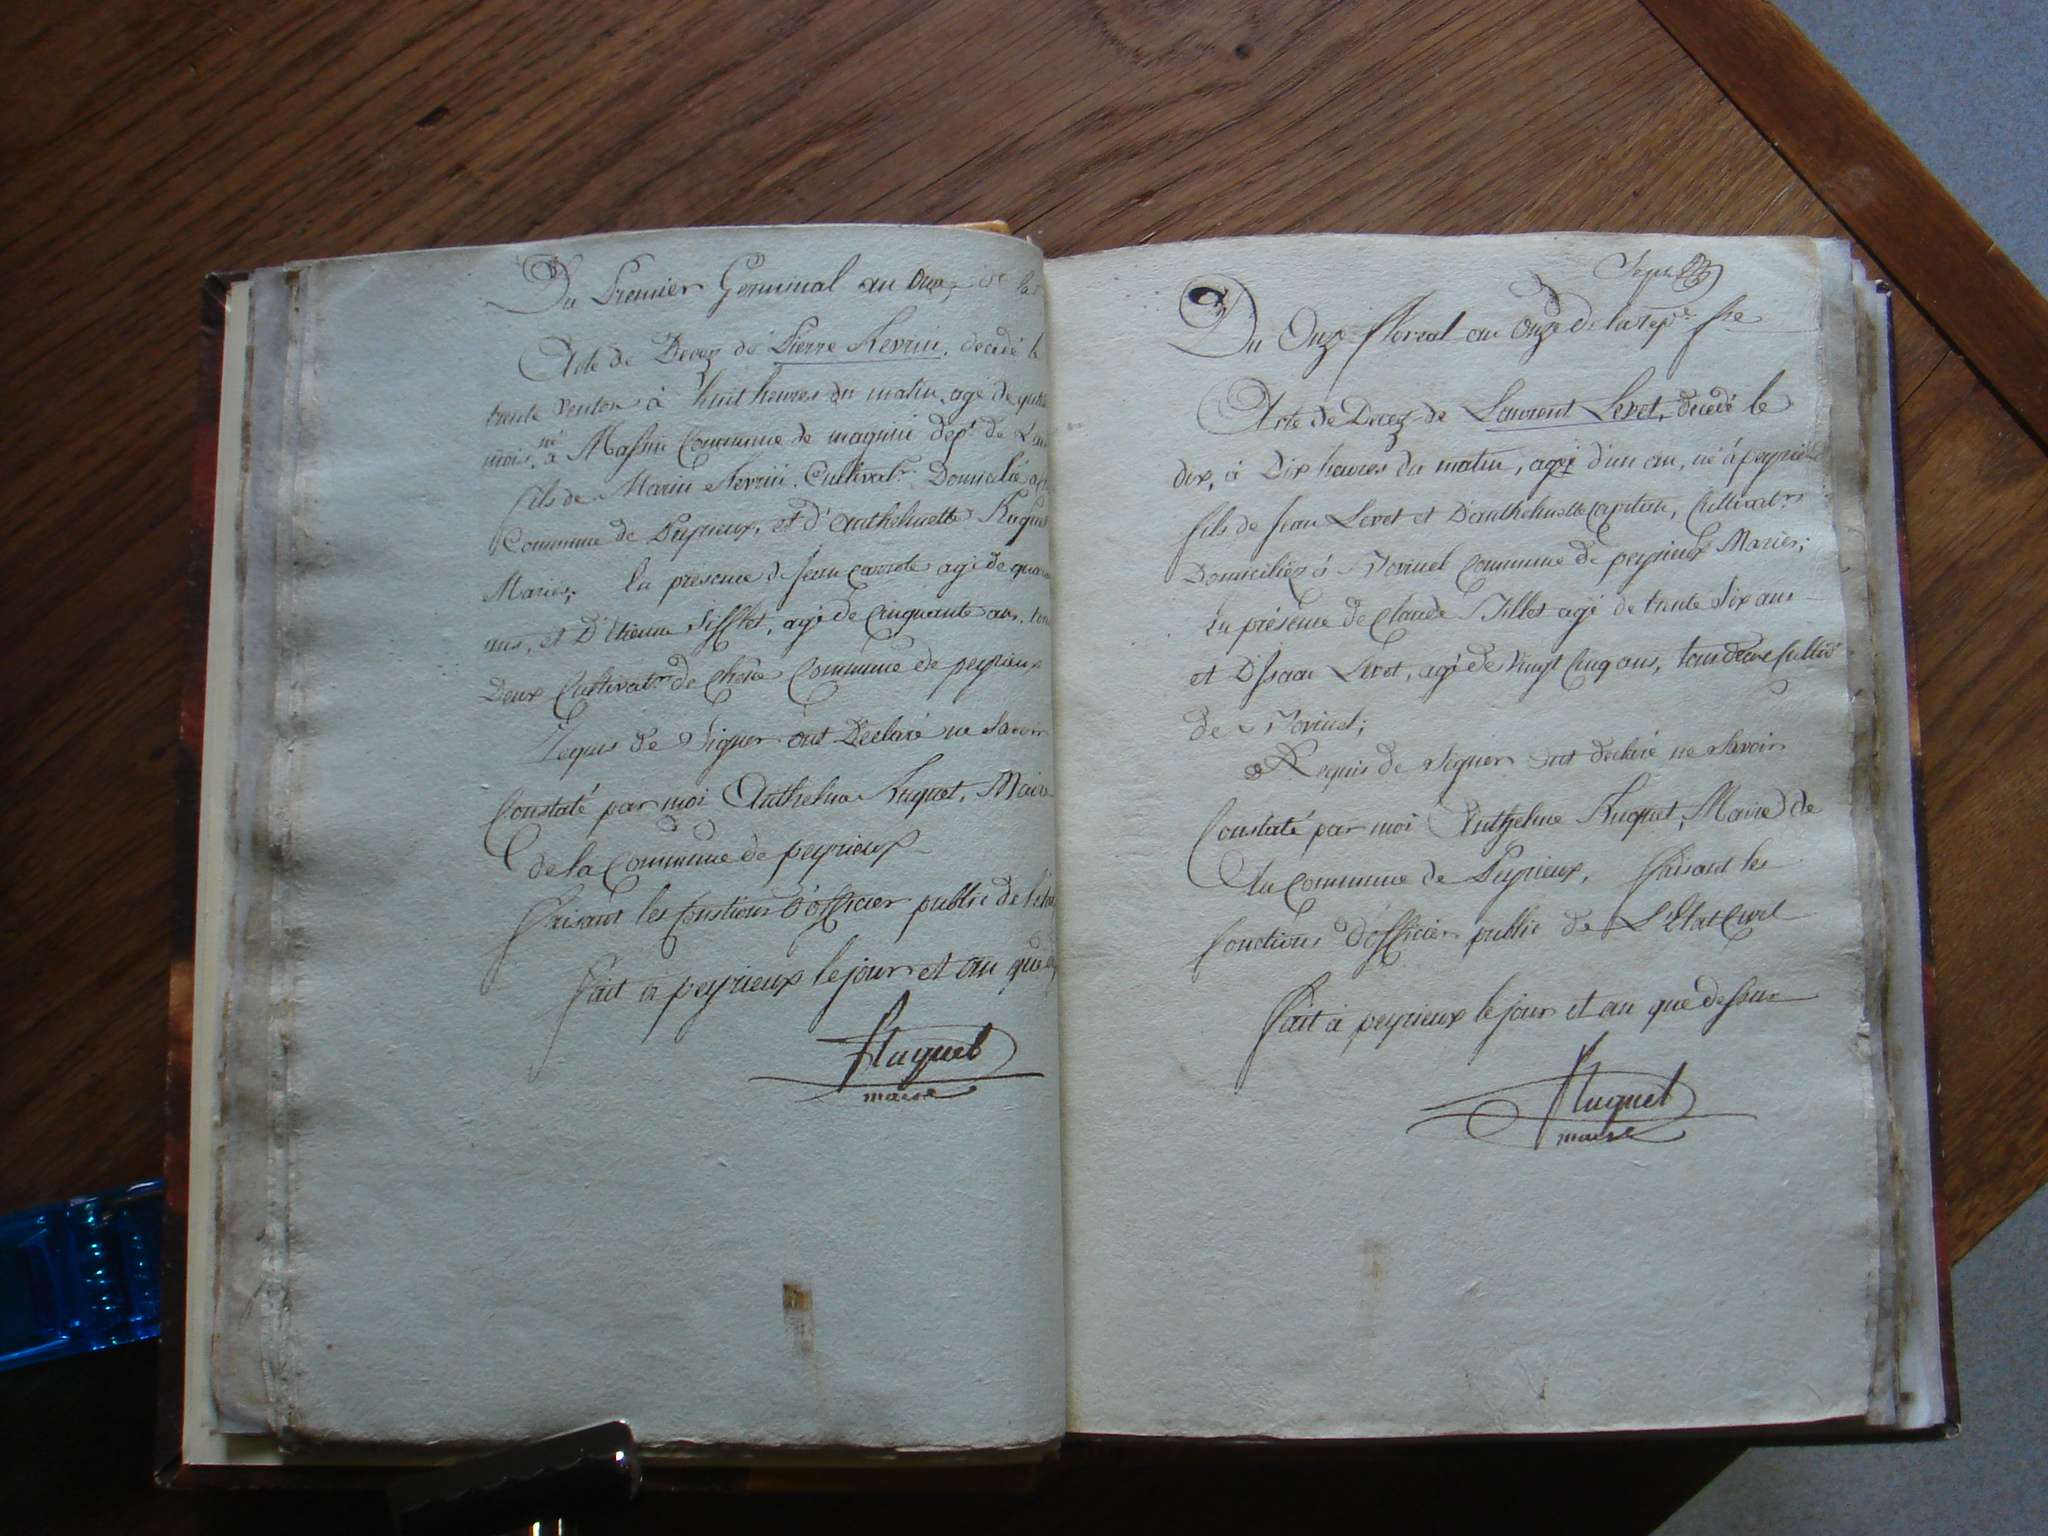 Du Premier Germinal an onze de la
Acte de Decez de Pierre Nevrin, decedé le
trente Ventose à huit heures du matin, agé de quatre
mois, né à Massin Commune de magnin dep.t de L'ain
fils de Marin Nevrin, Cultivat.r Domicilié
Commune de Peyrieux, et d'Anthelmette Huguet
Mariés; En présence de Jean agé de quarante
ans, et D'Etienne Sifflet, agé de Cinquante ans, tous
Deux Cultivat.rs de Commune de peyrieux
Requis de Signer ont Declaré ne Savoir
Constaté par moi Anthelme Huguet, Maire
de la Commune de peyrieux
faisant les fonctions d'officier public de l'état
fait à peyrieux le jour et an que
Huguet
maire
Sept
Du Onze floreal an Onze de la rep.e f.se
Acte de Decez de Laurent Levet, decedé le
dix, à Dix heures du matin, agé d'un an, né à peyrieux
fils de Jean Levet et D'anthelmette Cultivat.rs
Domiciliez à Commune de peyrieux Mariés;
En présence de Claude Billet agé de trente Six ans
et D'Isaac Levet, agé de Vingt Cinq ans, tous deux Cultiv
de
Requis de Signer ont declaré ne Savoir
Constaté par moi Anthelme Huguet, Maire de
la Commune de Peyrieux, faisant les
fonctions d'officier public de L'Etat Civil
fait à peyrieux le jour et an que dessus
Huguet
maire